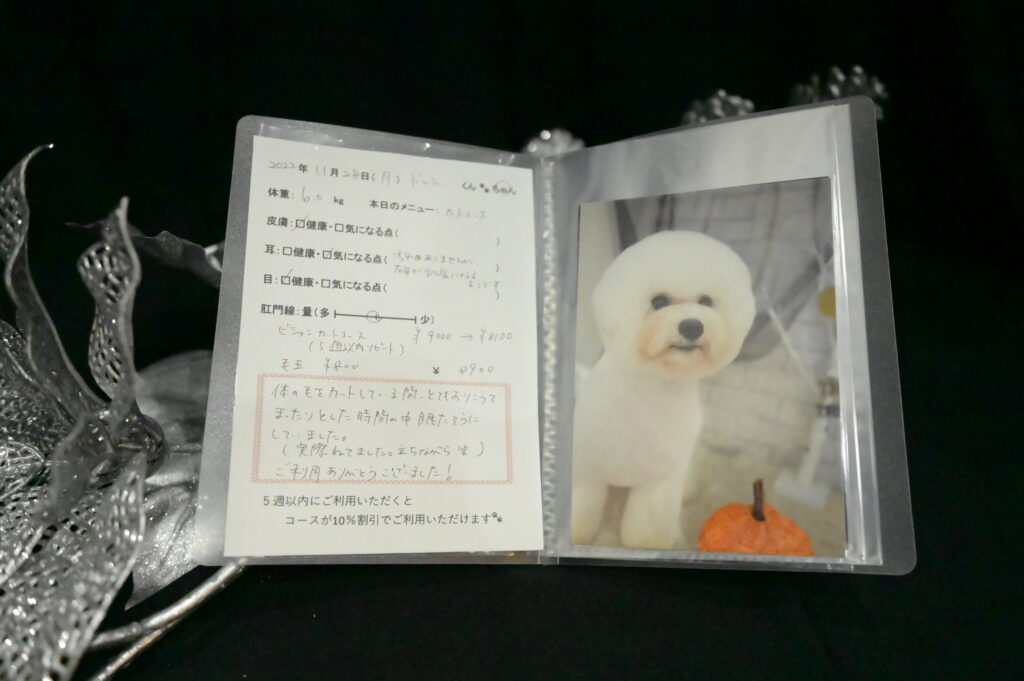 2022年 11月 28日(月) くん・ちゃん
体重: 6.0 kg 本日のメニュー: カットコース
皮膚:☑健康・☐気になる点( )
耳:☐健康・☑気になる点(汚れはありませんが、
が少し気になる
ようです)
目:☑健康・☐気になる点( )
肛門線:量(多 少)
ビションカットコース ¥9000 → ¥8100
(5週以内リピート)
毛玉 ¥800 ¥ 8900
体の毛をカットしている間、とてもおりこうで
まったりとした時間の中眠たそうに
していました。
(実際ねてました。立ちながら 笑)
ご利用ありがとうございました!
5週以内にご利用いただくと
コースが10%割引でご利用いただけます